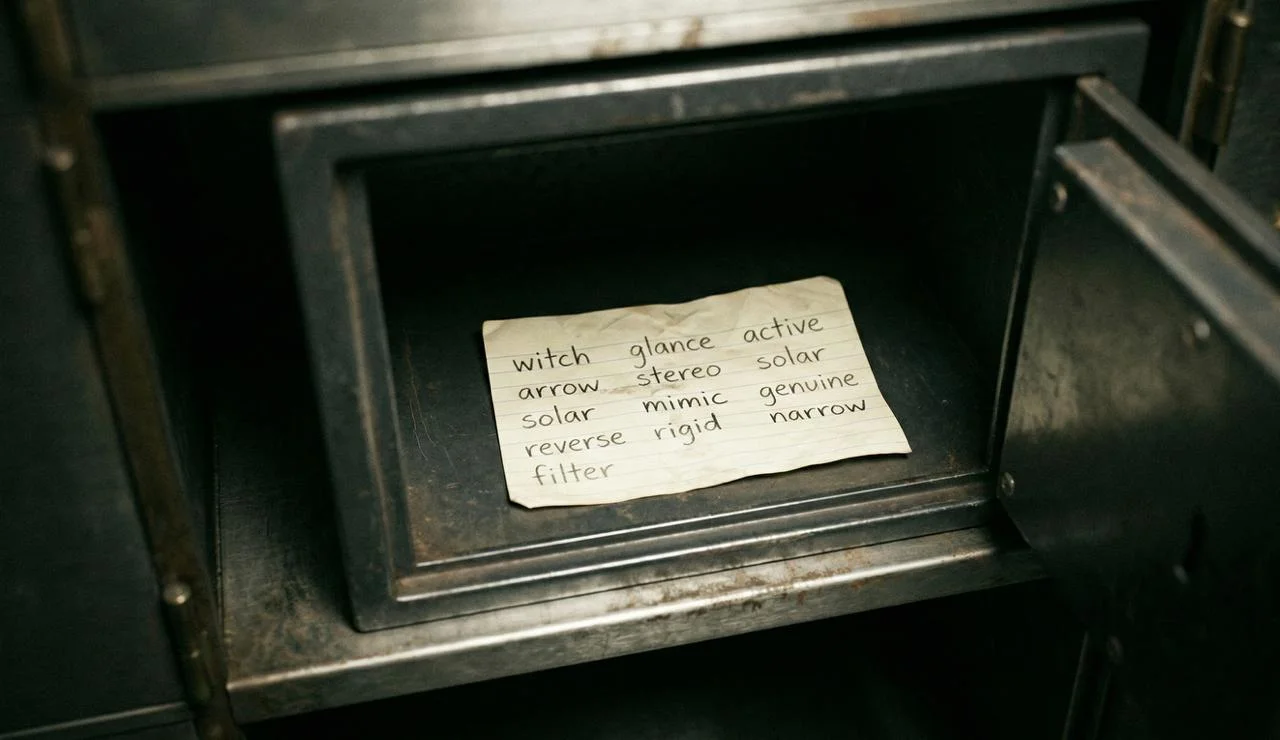 witch glance active
arrow stereo solar
solar mimic genuine
reverse rigid narrow
filter